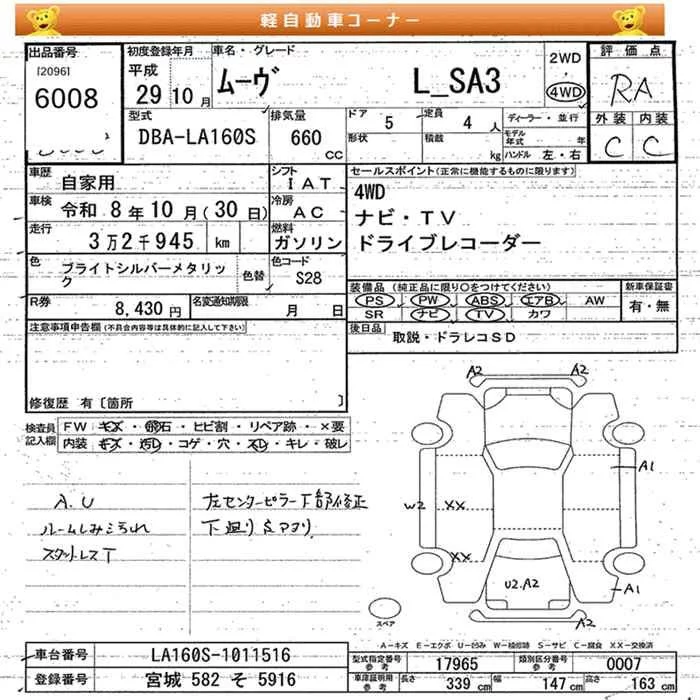 軽自動車コーナー
出品番号
[2096]
6008
初度登録年月
平成
29年10月
車名・グレード
ムーヴ
L_SA3
2WD
・
4WD
評価点
RA
外装 内装
C C
型式
DBA-LA160S
排気量
660
CC
ドア 5
形状
定員 4 人
積載
kg
ディーラー・並行
モデル年式 年
ハンドル 左・右
車歴 自家用
シフト IAT
車検 令和 8年10月(30日)
冷房 AC
走行 3万2千945 km
燃料 ガソリン
色 ブライトシルバーメタリック
色替
色コード S28
R券 8,430円
名変通知期限
月 日
セールスポイント(正常に機能するものに限ります)
4WD
ナビ・TV
ドライブレコーダー
装備品(純正品に限り○をつけてください)
PS PW ABS エアB AW
SR ナビ TV カワ
新車保証書
有・無
後日品
取説・ドラレコSD
注意事項申告欄(不具合内容等は具体的に記入して下さい)
修復歴 有〔箇所 〕
検査員記入欄
FW キズ・飛石・ヒビ割・リペア跡・×要
内装 キズ・汚レ・コゲ・穴・スレ・キレ・破レ
A.U
ルームしみよごれ
スタットレスT
左センターピラー下部修正
下廻りサビアリ
A2 A2
A1
W2 XX
XX
A1
U2.A2
A2
スペア
A-キズ E-エクボ U-凹み W-補修跡 S-サビ C-腐食 XX-交換済
車台番号 LA160S-1011516
登録番号 宮城 582 そ 5916
型式指定番号
参考
17965
類別区分番号
参考
0007
車庫証明用
参考
長さ 339 cm
幅 147 cm
高さ 163 cm